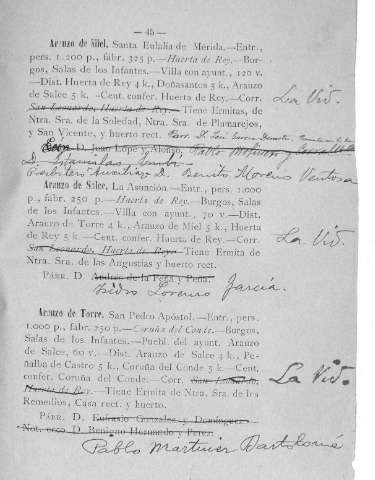 — 45 —
Arauzo de Miel, Santa Eulalia de Mérida.—Entr.,
pers. 1.200 p., fábr. 325 p.—Huerta de Rey.—Bur-
gos, Salas de los Infantes.—Villa con ayunt., 120 v.
—Dist. Huerta de Rey 4 k., Doñasantos 3 k., Arauzo
de Salce 5 k.—Cent. confer. Huerta de Rey.—Corr.
La Vid.
San Leonardo, Huerta de Rey.—Tiene Ermitas, de
Ntra. Sra. de la Soledad, Ntra. Sra. de Plumarejos,
y San Vicente, y huerto rect.
D. Juan Lope y Alonso, Pablo
D. Estanislao
Presbítero Auxiliar D. Benito Moreno Ventosa
Arauzo de Salce, La Asunción.—Entr., pers. 1.000
p., fábr. 250 p.—Huerta de Rey.—Burgos, Salas
de los Infantes.—Villa con ayunt., 70 v.—Dist.
Arauzo de Torre 4 k., Arauzo de Miel 5 k., Huerta
de Rey 5 k.—Cent. confer. Huerta de Rey.—Corr.
La Vid.
San Leonardo, Huerta de Rey.—Tiene Ermita de
Ntra. Sra. de las Angustias y huerto rect.
Párr. D. Andrés de la Peña y Peña.
Isidro Lorenzo García.
Arauzo de Torre, San Pedro Apóstol.—Entr., pers.
1.000 p., fábr. 250 p.—Coruña del Conde.—Burgos,
Salas de los Infantes.—Puebl. del ayunt. Arauzo
de Salce, 60 v.—Dist. Arauzo de Salce 4 k., Pe-
ñalba de Castro 5 k., Coruña del Conde 5 k.—Cent.
confer. Coruña del Conde.—Corr. San Leonardo,
La Vid.
Huerta de Rey.—Tiene Ermita de Ntra. Sra. de los
Remedios, Casa rect. y huerto.
Párr. D. Eufrasio Gonzalez y Dominguez.
Not. ecco D. Benigno Hernando y Perez.
Pablo Martinez Bartolomé